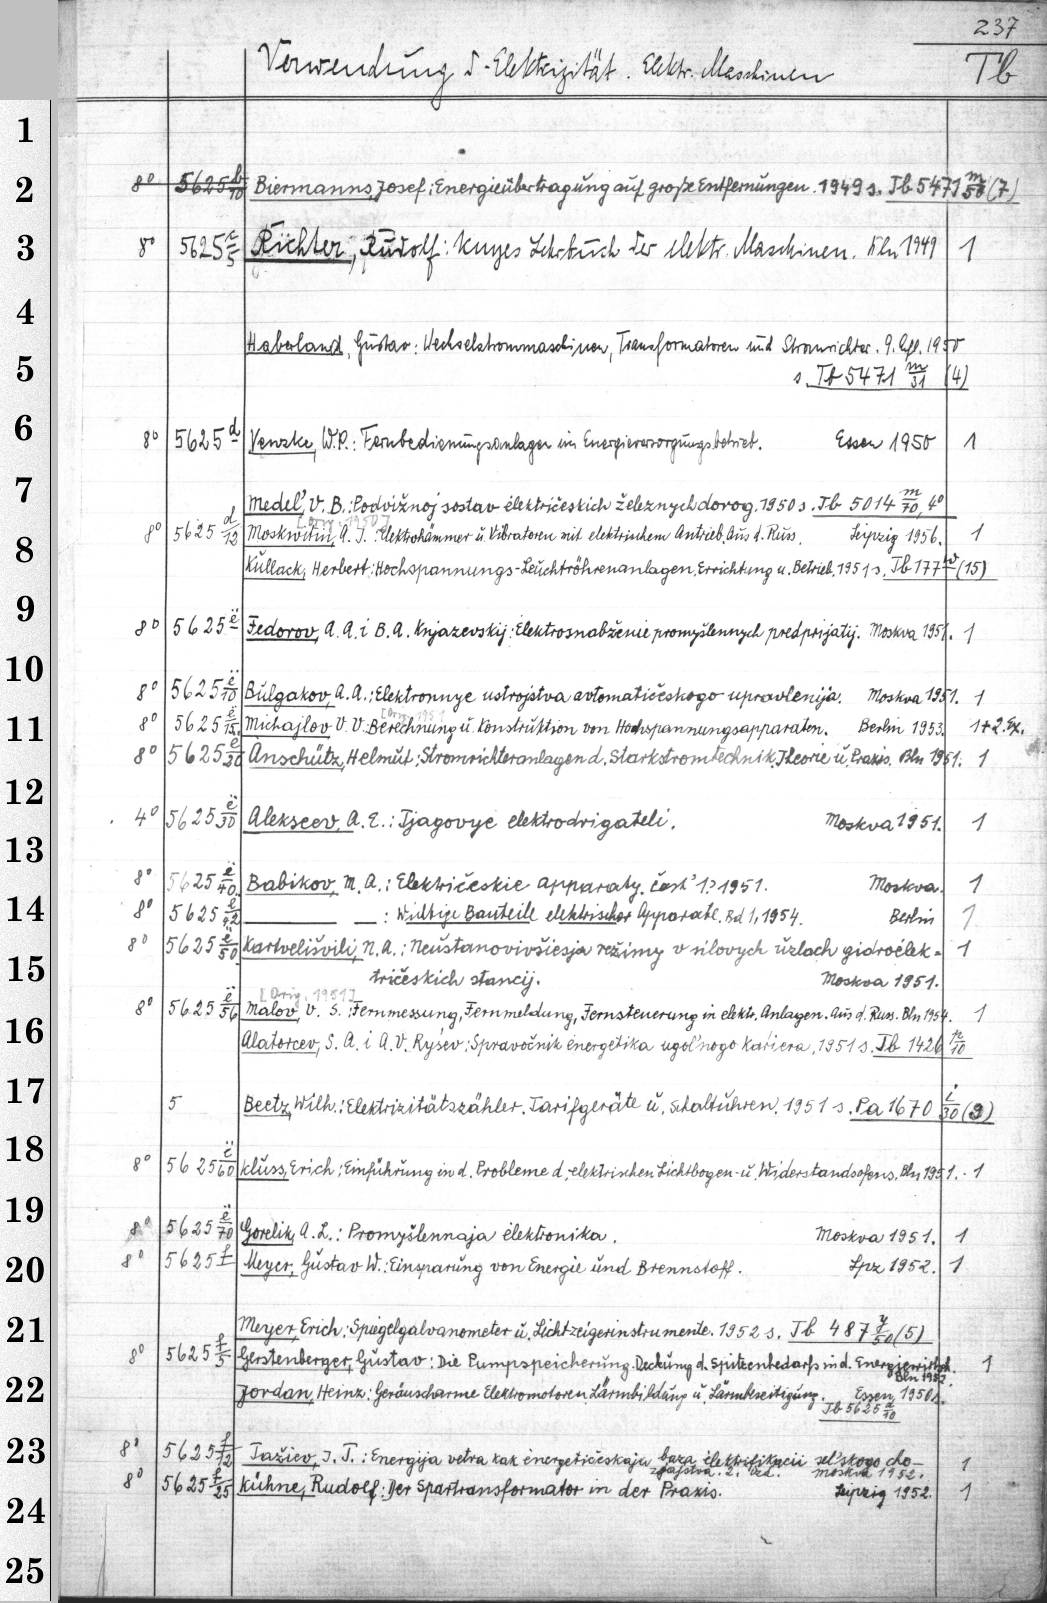 237
Verwendung d. Elektrizität. Elektr. Maschinen Tb
1
2 8° 5625 b/10 Biermanns, Josef: Energieübertragung auf große Entfernungen. 1949 s. Tb 5471 m/50 (7)
3 8° 5625 c/5 Richter, Rudolf: Kurzes Lehrbuch der elektr. Maschinen. Bln 1949 1
4
Haberland, Gustav: Wechselstrommaschinen, Transformatoren und Stromrichter. 9. Afl. 1950
5 s. Tb 5471 m/31 (4)
6 8° 5625 d Venzke, W.P.: Fernbedienungsanlagen im Energieversorgungsbetrieb. Essen 1950 1
7 Medel', V. B.: Podvižnoj sostav ėlektričeskich železnych dorog. 1950 s. Tb 5014 m/70, 4°
[Orig. 1950]
8 8° 5625 d/12 Moskwitin, A. I.: Elektrohämmer u. Vibratoren mit elektrischem Antrieb. Aus d. Russ. Leipzig 1956. 1
Kullack, Herbert: Hochspannungs-Leuchtröhrenanlagen. Errichtung u. Betrieb. 1951 s. Tb 177 (15)
9 8° 5625 ë Fedorov, A. A. i B. A. Knjazevskij: Elektrosnabženie promyšlennych predprijatij. Moskva 1951. 1
10 8° 5625 ë/10 Bulgakov, A. A.: Elektronnye ustrojstva avtomatičeskogo upravlenija. Moskva 1951. 1
[Orig. 1951
11 8° 5625 ë/15. Michajlov V. V. Berechnung u. Konstruktion von Hochspannungsapparaten. Berlin 1953. 1+2. Ex.
8° 5625 ë/20 Anschütz, Helmut: Stromrichteranlagen d. Starkstromtechnik. Theorie u. Praxis. Bln 1951. 1
12 4° 5625 ë/30 Alekseev, A. E.: Tjagovye elektrodvigateli. Moskva 1951. 1
13
8° 5625 ë/40. Babikov, M. A.: Električeskie apparaty. čast' 1. 1951. Moskva. 1
14 8° 5625 ë/42 ——— — : Wichtige Bauteile elektrischer Apparate. Bd 1, 1954. Berlin 1
8° 5625 ë/50 Kartvelišvili, N. A.: Neustanovivšiesja režimy v silovych uzlach gidroėlek- 1
15 tričeskich stancij. Moskva 1951.
[Orig. 1951]
8° 5625 ë/56 Malov, V. S.: Fernmessung, Fernmeldung, Fernsteuerung in elektr. Anlagen. Aus d. Russ. Bln 1954. 1
16 Alatorcev, S. A. i A. V. Ryśev: Spravočnik ėnergetika ugol'nogo kar'era. 1951 s. Tb 1426 n/10
17 5 Beetz, Wilh.: Elektrizitätszähler. Tarifgeräte u. Schaltuhren. 1951 s. Pa 1670 i/30 (9)
18 8° 5625 ë/60 Kluss, Erich: Einführung in d. Probleme d. elektrischen Lichtbogen- u. Widerstandsofens. Bln 1951. 1
19 8° 5625 ë/70 Gorelik, A. L.: Promyšlennaja ėlektronika. Moskva 1951. 1
20 8° 5625 f Meyer, Gustav W.: Einsparung von Energie und Brennstoff. Lpz 1952. 1
21 Meyer, Erich: Spiegelgalvanometer u. Lichtzeigerinstrumente. 1952 s. Tb 487 y/50 (5)
8° 5625 f/5 Gerstenberger, Gustav: Die Pumpspeicherung. Deckung d. Spitzenbedarfs in d. Energiewirtsch. 1
Bln 1952.
22 Jordan, Heinz: Geräuscharme Elektromotoren. Lärmbildung u. Lärmbeseitigung. Essen, 1950 s.
Tb 5625 a/10
23 8° 5625 f/12 Tažiev, I. T.: Energija vetra kak ėnergetičeskaja baza ėlektrifikacii sel'skogo cho- 1
zjajstva. 2. Izd. Moskva 1952.
8° 5625 f/25 Kühne, Rudolf: Der Spartransformator in der Praxis. Leipzig 1952. 1
24
25